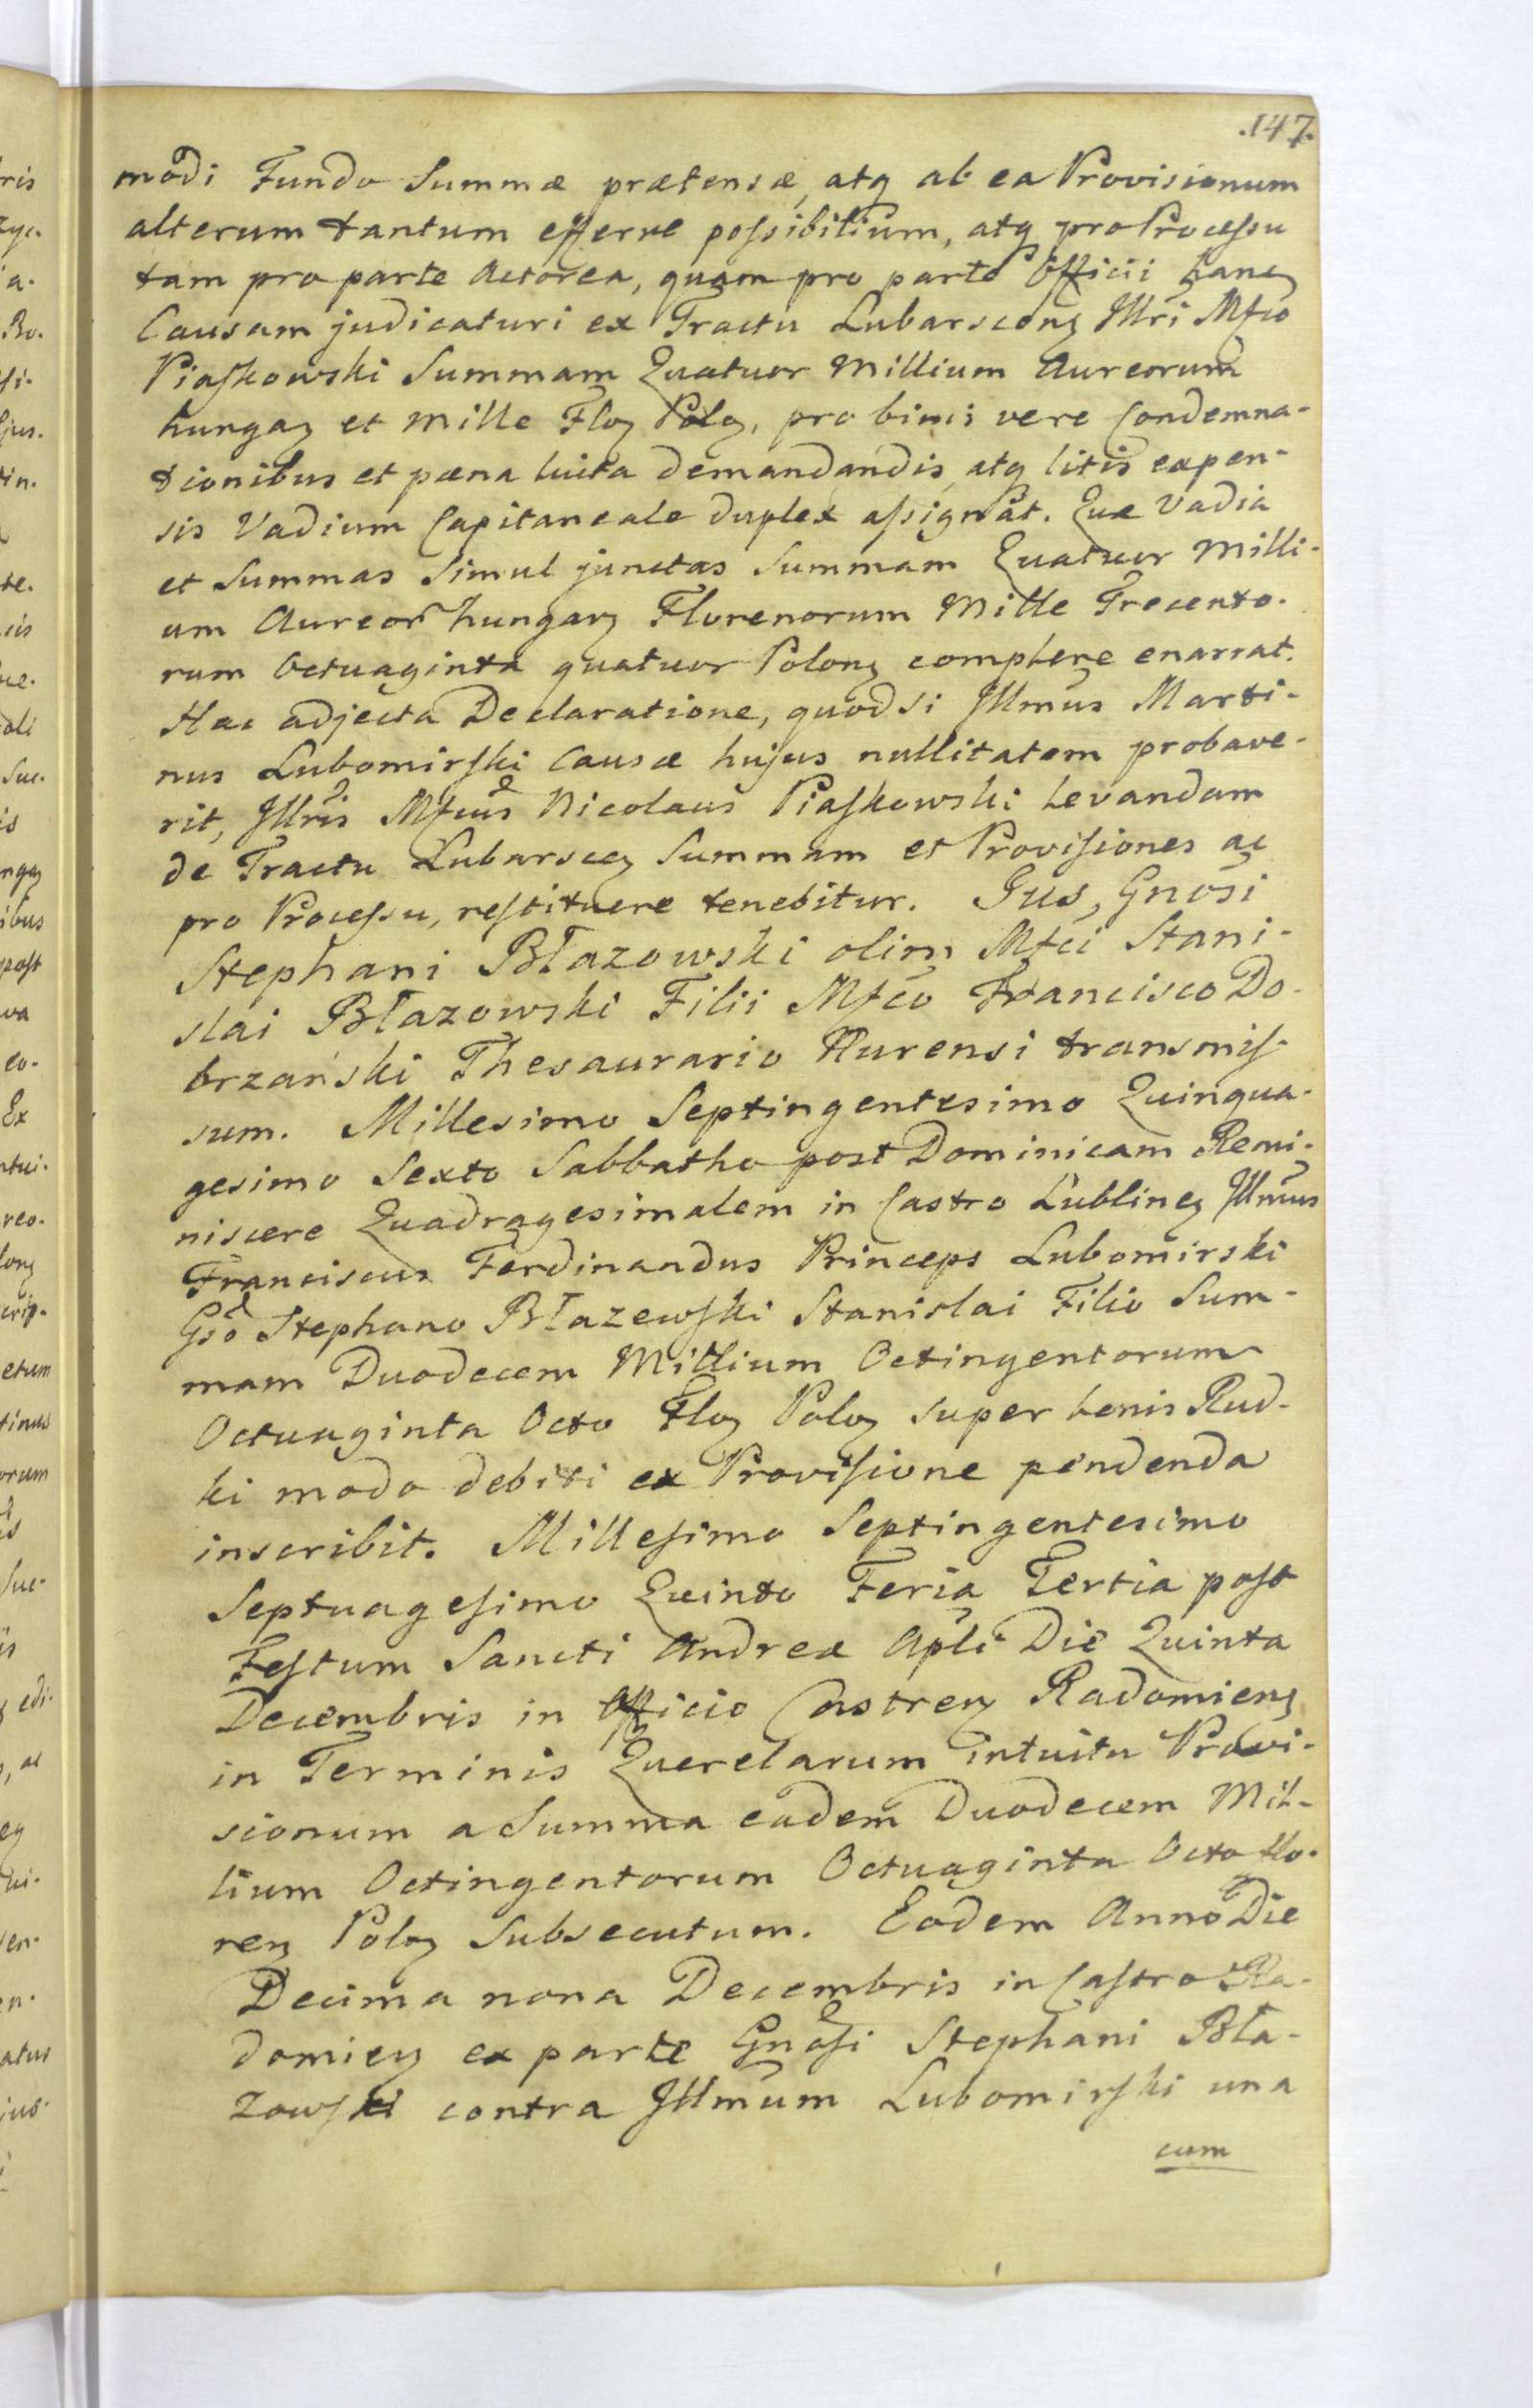 .147.
modi Fundo Summæ prætensæ, atq ab ea Provisionum
alterum tantum efferre possibilium, atq pro Processu
tam pro parte Actorea, quam pro parte Officii hanc
Causam judicaturi ex Tractu Lubarscenz Illri Mfco
Piaskowski Summam Quatuor Millium Aureorum
hungaz et mille Floz Poloz, pro binis vere Condemna-
tionibus et pœna luita demandandis, atq litis expen-
sis Vadium Capitaneale duplex assignat. Quæ Vadia
et Summas Simul junctas Summam Quatuor Milli-
um Aureor hungarz Florenorum Mille Trecento-
rum Octuaginta quatuor Polonz complere enarrat.
Hac adjecta Declaratione, quod si Illmus Marti-
nus Lubomirski Causæ hujus nullitatem probave-
rit, Illris Mfcus Nicolaus Piaskowski levandam
de Tractu Lubarscez Summam et Provisiones ac
pro Processu, restituere tenebitur. Jus, Gnosi
Stephani Błazowski olim Mfci Stani-
slai Błazowski Filii Mfco Francisco Do-
brzański Thesaurario Hurensi transmis-
sum. Millesimo Septingentesimo Quinqua-
gesimo Sexto Sabbatho post Dominicam Remi-
niscere Quadragesimalem in Castro Lublinez Illmus
Franciscus Ferdinandus Princeps Lubomirski
Gso Stephano Błazewski Stanislai Filio Sum-
mam Duodecem Millium Octingentorum
Octuaginta Octo Floz Poloz super bonis Rud-
ki modo debiti ex Provisione pendenda
inscribit. Millesimo Septingentesimo
Septuagesimo Quinto Feria Tertia post
Festum Sancti Andreæ Apli Die Quinta
Decembris in Officio Castrenz Radomienz
in Terminis Querelarum intuitu Provi-
sionum a Summa eadem Duodecem Mil-
lium Octingentorum Octuaginta Octo flo-
renz Poloz Subsecutum. Eodem Anno Die
Decima nona Decembris in Castro Ra-
domienz ex parte Gnosi Stephani Bła-
zowski contra Illmum Lubomirski una
cum